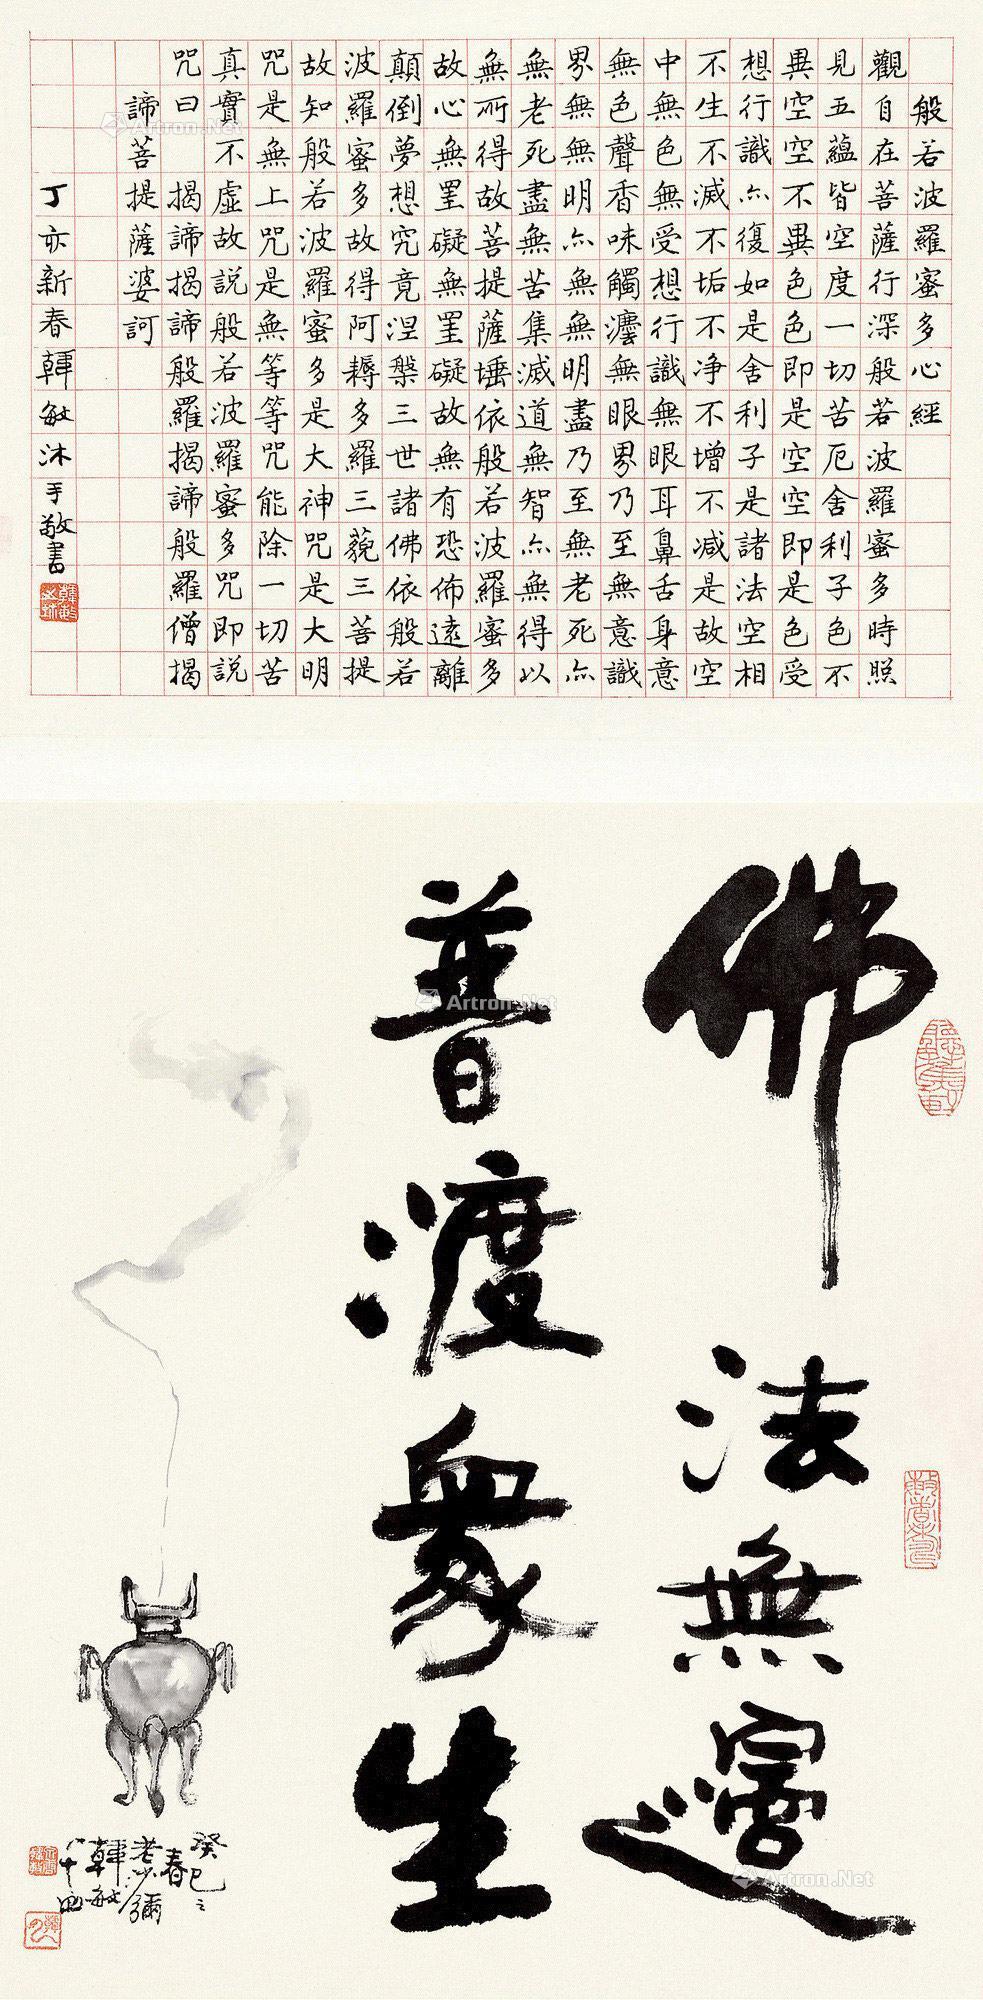 般若波羅蜜多心經
觀自在菩薩行深般若波羅蜜多時照
見五蘊皆空度一切苦厄舍利子色不
異空空不異色色即是空空即是色受
想行識亦復如是舍利子是諸法空相
不生不滅不垢不净不增不减是故空
中無色無受想行識無眼耳鼻舌身意
無色聲香味觸灋無眼界乃至無意識
界無無明亦無無明盡乃至無老死亦
無老死盡無苦集滅道無智亦無得以
無所得故菩提薩埵依般若波羅蜜多
故心無罣礙無罣礙故無有恐佈遠離
顛倒夢想究竟涅槃三世諸佛依般若
波羅蜜多故得阿耨多羅三藐三菩提
故知般若波羅蜜多是大神咒是大明
咒是無上咒是無等等咒能除一切苦
真實不虛故説般若波羅蜜多咒即説
咒曰 揭諦揭諦般羅揭諦般羅僧揭
諦菩提薩婆訶
丁亥新春韓敏沐手敬書
佛法無邊
普渡眾生
癸巳之
春
老沙彌
韓敏
八十四
Artron.Net
Artron.Net
Artron.Net
Artron.Net